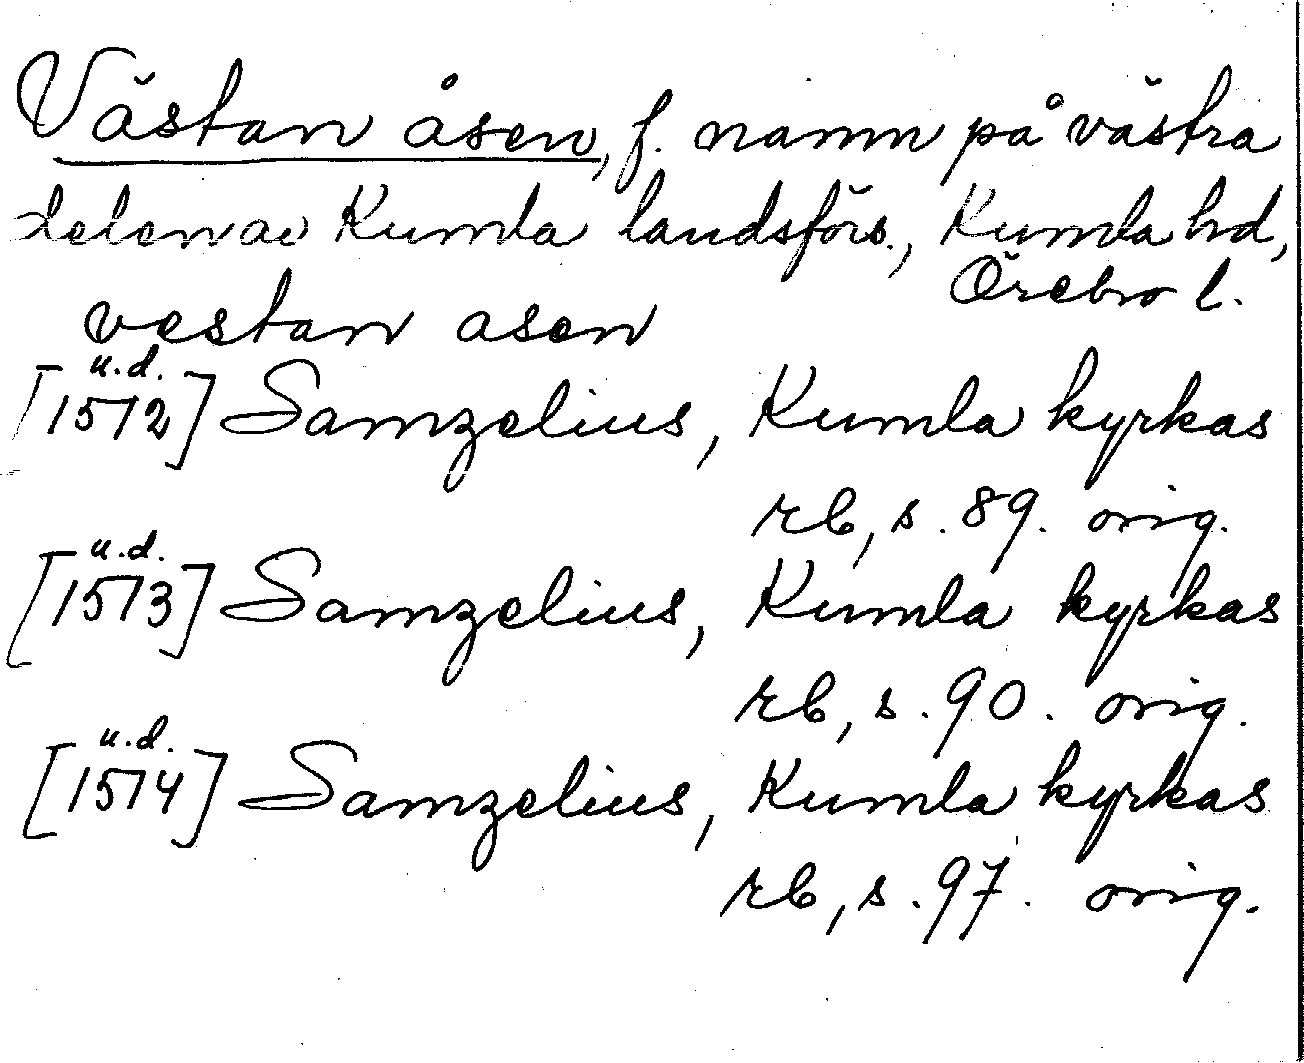 Västan åsen, f. namn på västra
delen av Kumla landsförs., Kumla hd,
Örebro l.
vestan asen
u.d.
[1572] Samzelius, Kumla kyrkas
rb, s. 89. orig.
u.d.
[1573] Samzelius, Kumla kyrkas
rb, s. 90. orig.
u.d.
[1574] Samzelius, Kumla kyrkas
rb, s. 97. orig.